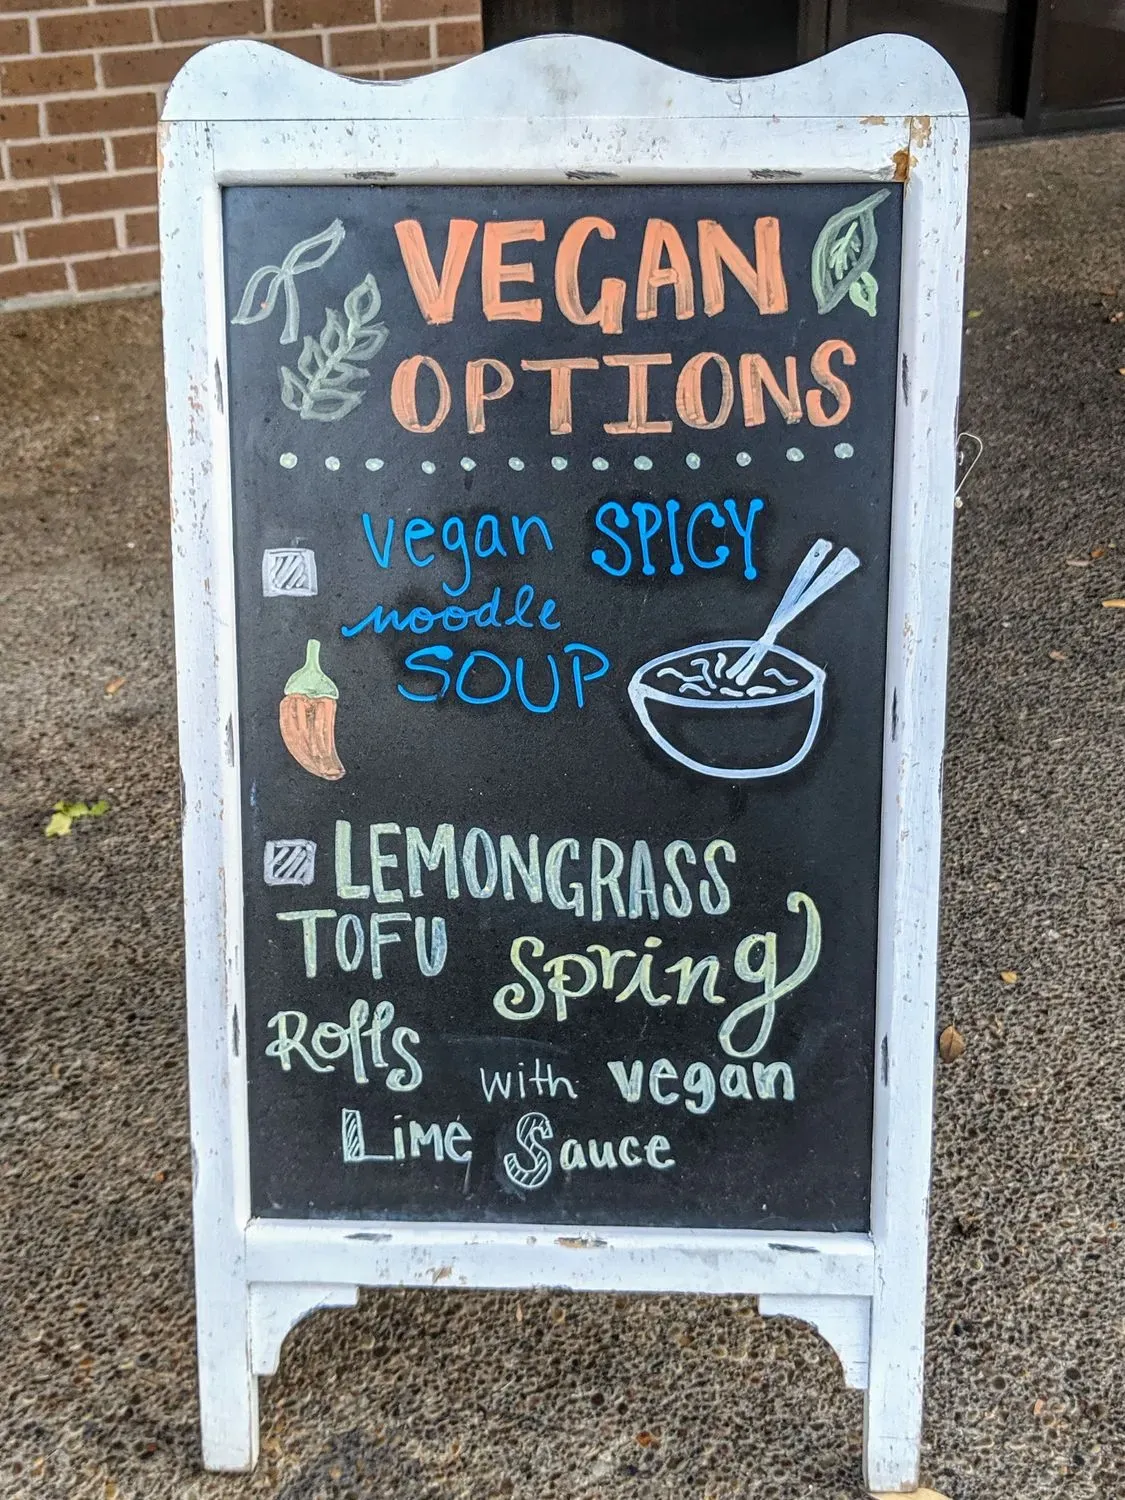 VEGAN
OPTIONS
vegan SPICY
noodle
SOUP
LEMONGRASS
TOFU Spring
Rolls
with vegan
Lime Sauce